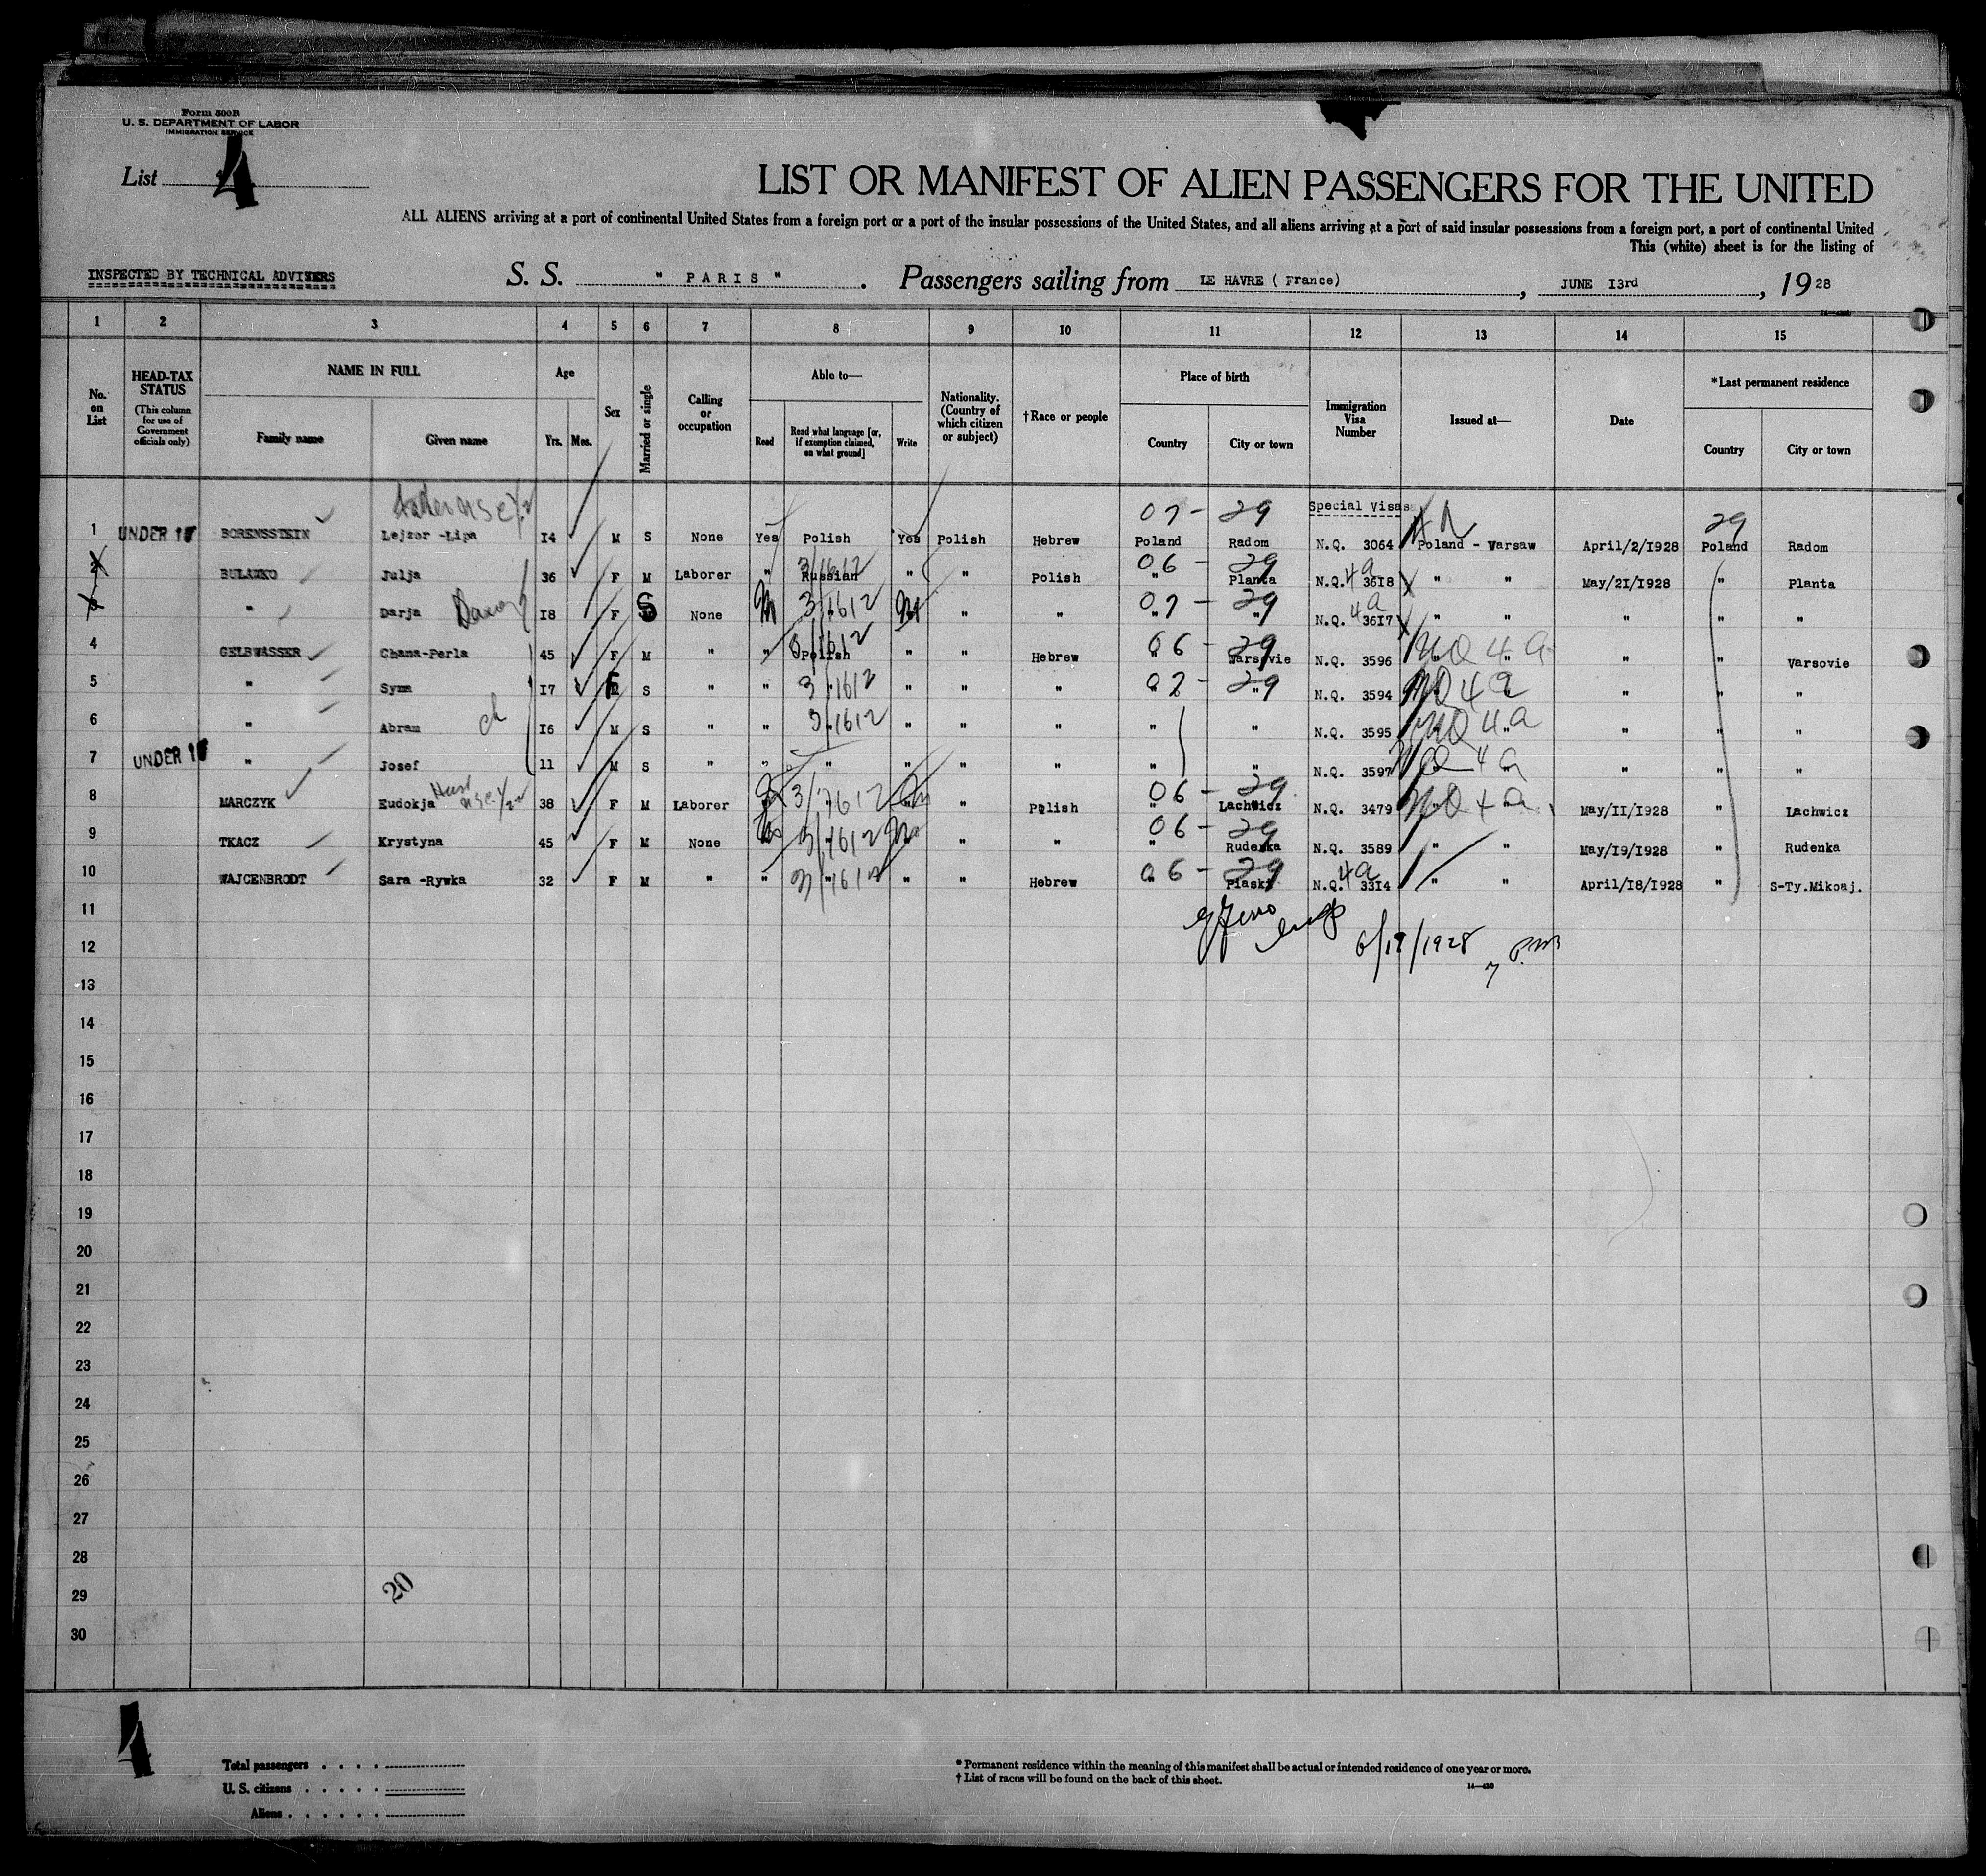 Form 500B
U. S. DEPARTMENT OF LABOR
IMMIGRATION SERVICE
List 4
LIST OR MANIFEST OF ALIEN PASSENGERS FOR THE UNITED
ALL ALIENS arriving at a port of continental United States from a foreign port or a port of the insular possessions of the United States, and all aliens arriving at a port of said insular possessions from a foreign port, a port of continental United
This (white) sheet is for the listing of
INSPECTED BY TECHNICAL ADVISERS
S. S. " PARIS ". Passengers sailing from LE HAVRE ( France) , JUNE I3rd , 1928
1 2 3 4 5 6 7 8 9 10 11 12 13 14 15
No. on List
HEAD-TAX STATUS (This column for use of Government officials only)
NAME IN FULL
Family name
Given name
Age
Yrs. Mos.
Sex
Married or single
Calling or occupation
Able to—
Read
Read what language [or, if exemption claimed, on what ground]
Write
Nationality. (Country of which citizen or subject)
†Race or people
Place of birth
Country
City or town
Immigration Visa Number
Issued at—
Date
*Last permanent residence
Country
City or town
07 - 29 Special Visas 29
1 UNDER 16 BORENSSTEIN Lejzor -Lipa I4 M S None Yes Polish Yes Polish Hebrew Poland Radom N.Q. 3064 Poland - Warsaw April/2/I928 Poland Radom
06 - 29 4a
2 BULAWKO Julja 36 F M Laborer " Russian " " Polish " Planta N.Q. 36I8 " " May/2I/I928 " Planta
07 - 29 4a
3 " Darja I8 F S None 3/1612 " " " " N.Q. 36I7 " " " " "
06 - 29
4 GELBWASSER Chana-Perla 45 F M " " Polish " " Hebrew " Varsovie N.Q. 3596 NQ 4a " " Varsovie
5 " Syma I7 F S " " 3/1612 " " " " 02 - 29 N.Q. 3594 NQ 4a " " "
6 " Abram ch I6 M S " " 3/1612 " " " " " N.Q. 3595 NQ 4a " " "
7 UNDER 16 " Josef 11 M S " " " " " " " " N.Q. 3597 NQ 4a " " "
06 - 29
8 MARCZYK Eudokja 38 F M Laborer " " " " Polish " Lachwicz N.Q. 3479 NQ 4a May/II/I928 " Lachwicz
06 - 29
9 TKACZ Krystyna 45 F M None 3/1612 " " " Rudenka N.Q. 3589 " " May/I9/I928 " Rudenka
06 - 29 4a
10 WAJCENBRODT Sara -Rywka 32 F M " " 3/1612 " " Hebrew " Piaski N.Q. 33I4 " " April/I8/I928 " S-Ty.Mikoaj.
11
12 6/19/1928 7 P.M
13
14
15
16
17
18
19
20
21
22
23
24
25
26
27
28
29 20
30
4
Total passengers
U. S. citizens
Aliens
* Permanent residence within the meaning of this manifest shall be actual or intended residence of one year or more.
† List of races will be found on the back of this sheet.